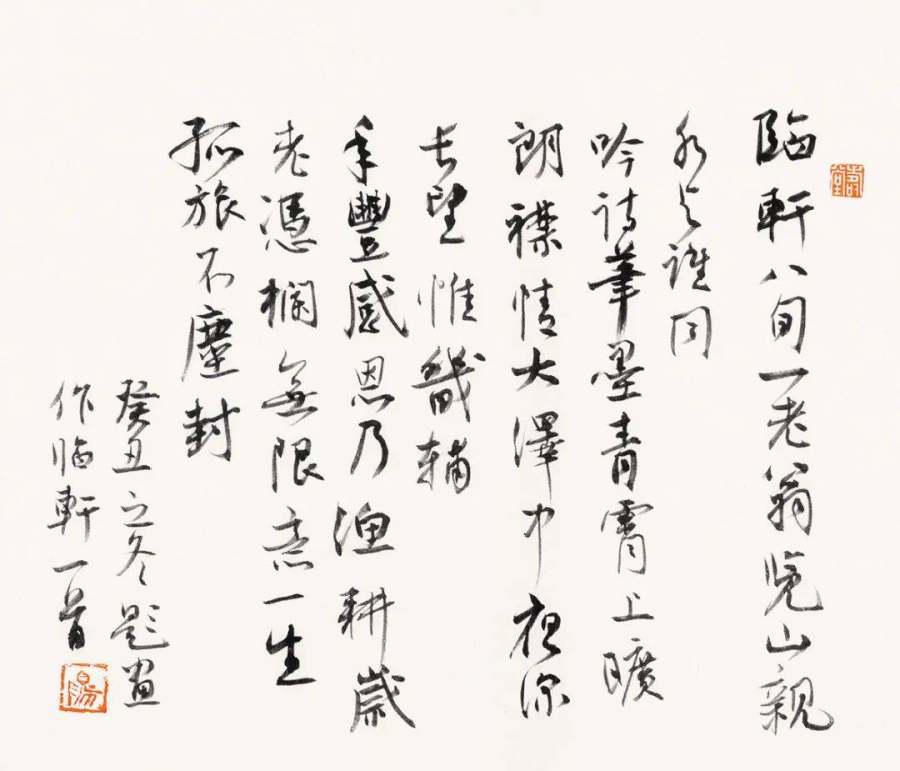 臨軒八旬一老翁览山親
水与誰同
吟詩筆墨青霄上曠
朗襟情大澤中夜深
长望惟畿輔
年豐感恩乃漁耕歲
老憑欄無限意一生
孤旅不塵封
癸丑之冬題畫
作临軒一首
陽